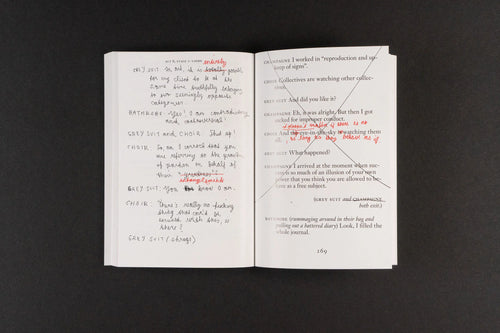 GREY SUIT So, no, it is totally possible
entirely
for my client to be at the
same time truthfully belonging
to two seemingly opposite
categories.
BATHROBE: Yes! I am contradictory
and
GREY SUIT and CHOIR: Shut up!
CHOIR: So, am I correct that you
are referring to the granting
of pardon on behalf of
their
GREY SUIT: You know I am.
CHOIR: There's really no fucking
thing that can't be
excused with this, is
there?
GREY SUIT (shrugs)
CHAMPAGNE I worked in “reproduction and up-
keep of signs”.
CHOIR Collectives are watching other collec-
tives.
GREY SUIT And did you like it?
CHAMPAGNE Eh, it was alright. But then I got
sacked for improper conduct.
CHOIR And the eye-in-the-sky is watching them
all,
as long as they behave as if
GREY SUIT What happened?
CHAMPAGNE I arrived at the moment when suc-
cess is so much of an illusion of your own
power that you think you are allowed to be-
have as a free subject.
(GREY SUIT and CHAMPAGNE
both exit.)
BATHROBE (rummaging around in their bag and
pulling out a battered diary) Look, I filled the
whole journal.
169